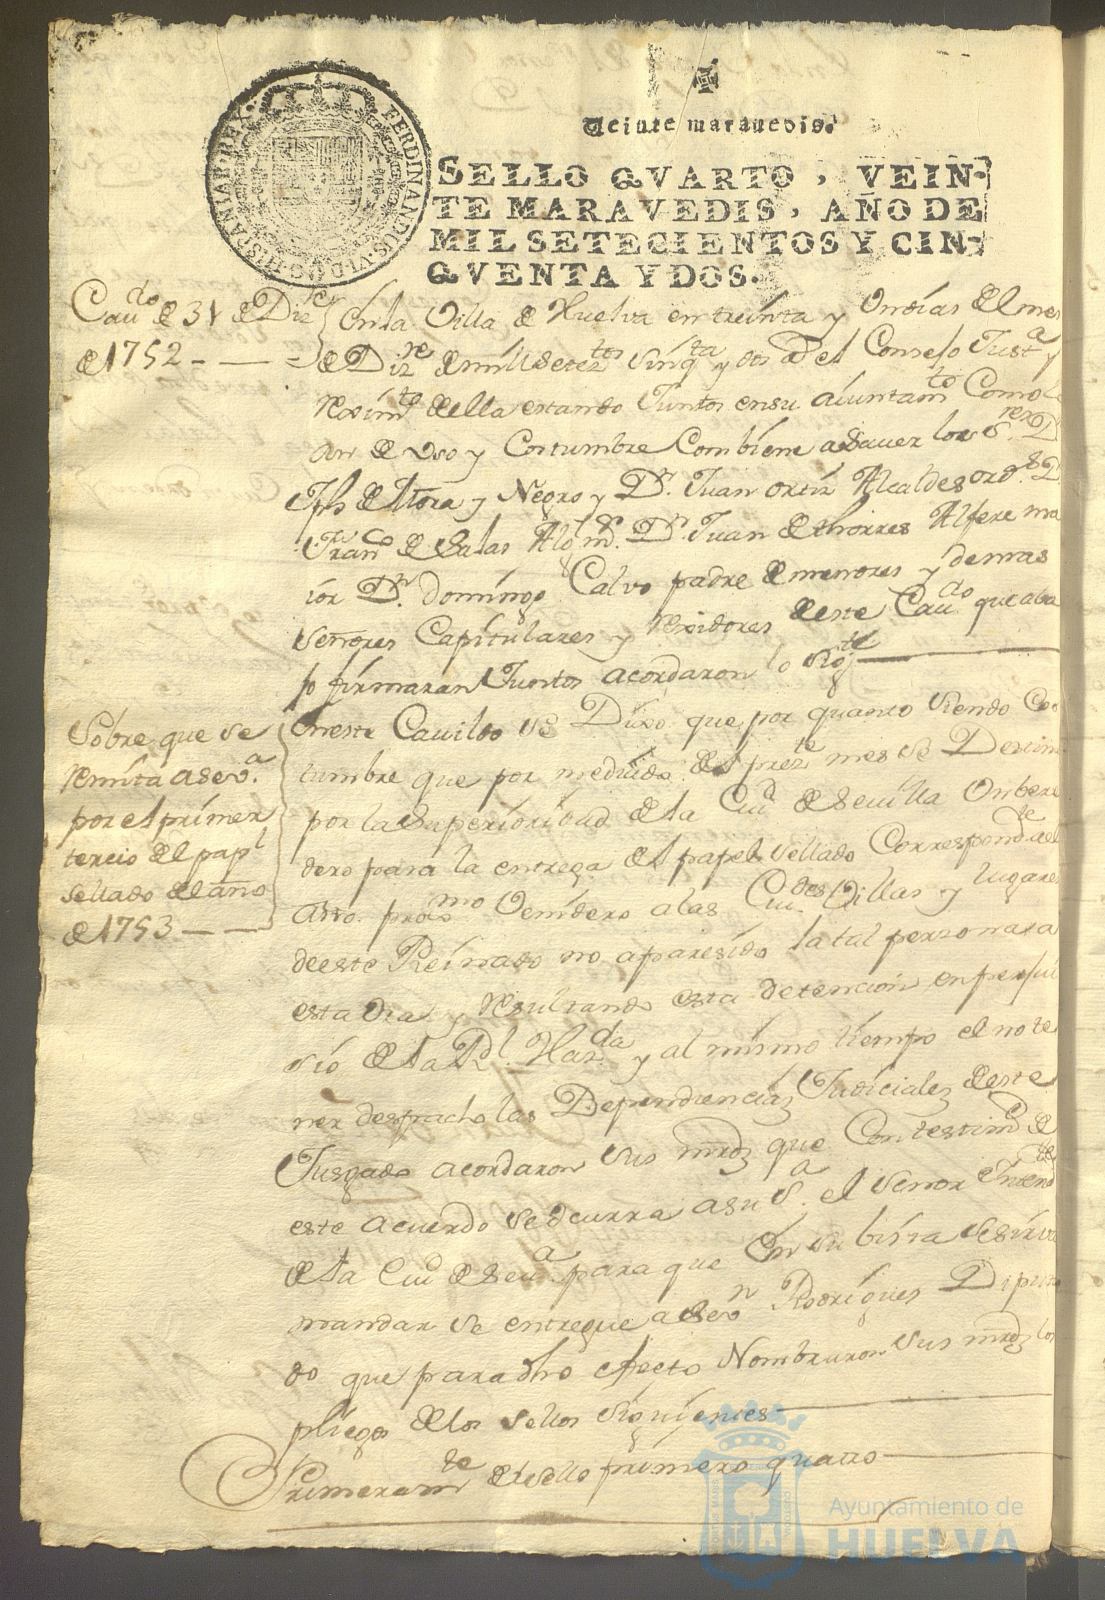 Veinte maravedis.
SELLO QVARTO, VEIN-
TE MARAVEDIS, AÑO DE
MIL SETECIENTOS Y CIN-
QVENTA Y DOS.
FERDINANDUS VI D G HISPANIAR REX
Cauдo de 31 de Dizre
de 1752
En la Villa de Huelva en treinta y Un días del mes
de Dizre de mill setezтos sinqta y dos as el Consejo Justa y
Reximto de ella estando Juntos en su aiuntamto Como
an de Uso y Costumbre Combiene a Sauer los Sres Dn
Jph de Mora y Negro y Dn Juan ortiz Alcaldes ordos Dn
Franco de Salas Algl mr Dn Juan de thorres Alferes ma
ior Dn domingo Calvo padre de menores y demas
señores Capitulares y Rexidores de este Caudo que aba
jo firmaran Juntos acordaron lo sigte
Sobre que se
Remita a Seva
por el primer
tercio del papl
sellado del año
de 1753
En este Cauildo se Dixo que por quanto siendo Cos
tumbre que por mediado del prezte mes de Desiem
por la Superioridad de la Ciud de Seuilla Un bere
dero para la entrega del papel Sellado Correspondte al
año proximo Venidero a las Ciudes Villas y lugares
de este Reinado no aparesido la tal perzona a
esta dia y Resultando esta detencion en perjui
sio de la Rl Hazda y al mismo tiempo el no te
ner despacho las Dependiencias Judiciales de este
Jusgado acordaron sus mrdz que Con testimo de
este acuerdo se ocurra a su Sa el señor Intendte
de la Ciud de Seua para que En su bista se sirva
mandar se entregue a Sevn Rodrigues Diputa
do que para dho efecto Nombraron sus mrdz los
pliegos de los sellos siguientes
Primeramte del sello primero quatro
Ayuntamiento de
HUELVA